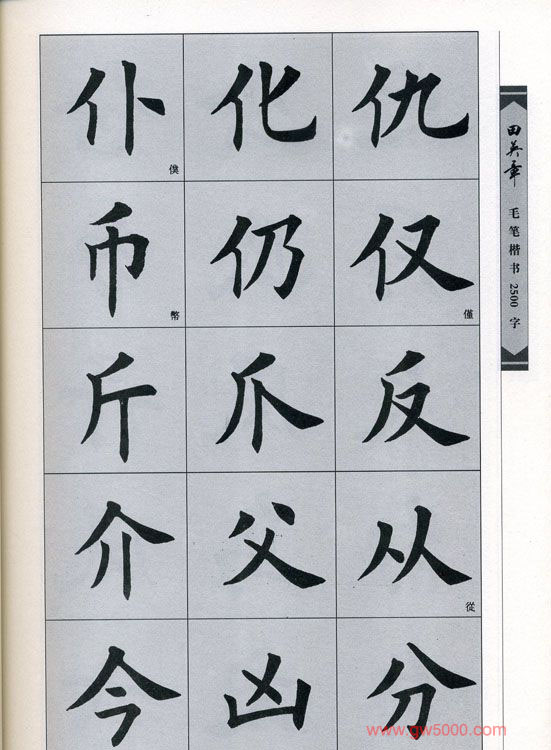 仇 化 仆 僕
仅 僅 仍 币 幣
反 爪 斤
从 從 父 介
分 凶 今
田英章
毛笔楷书 2500 字
www.gw5000.com